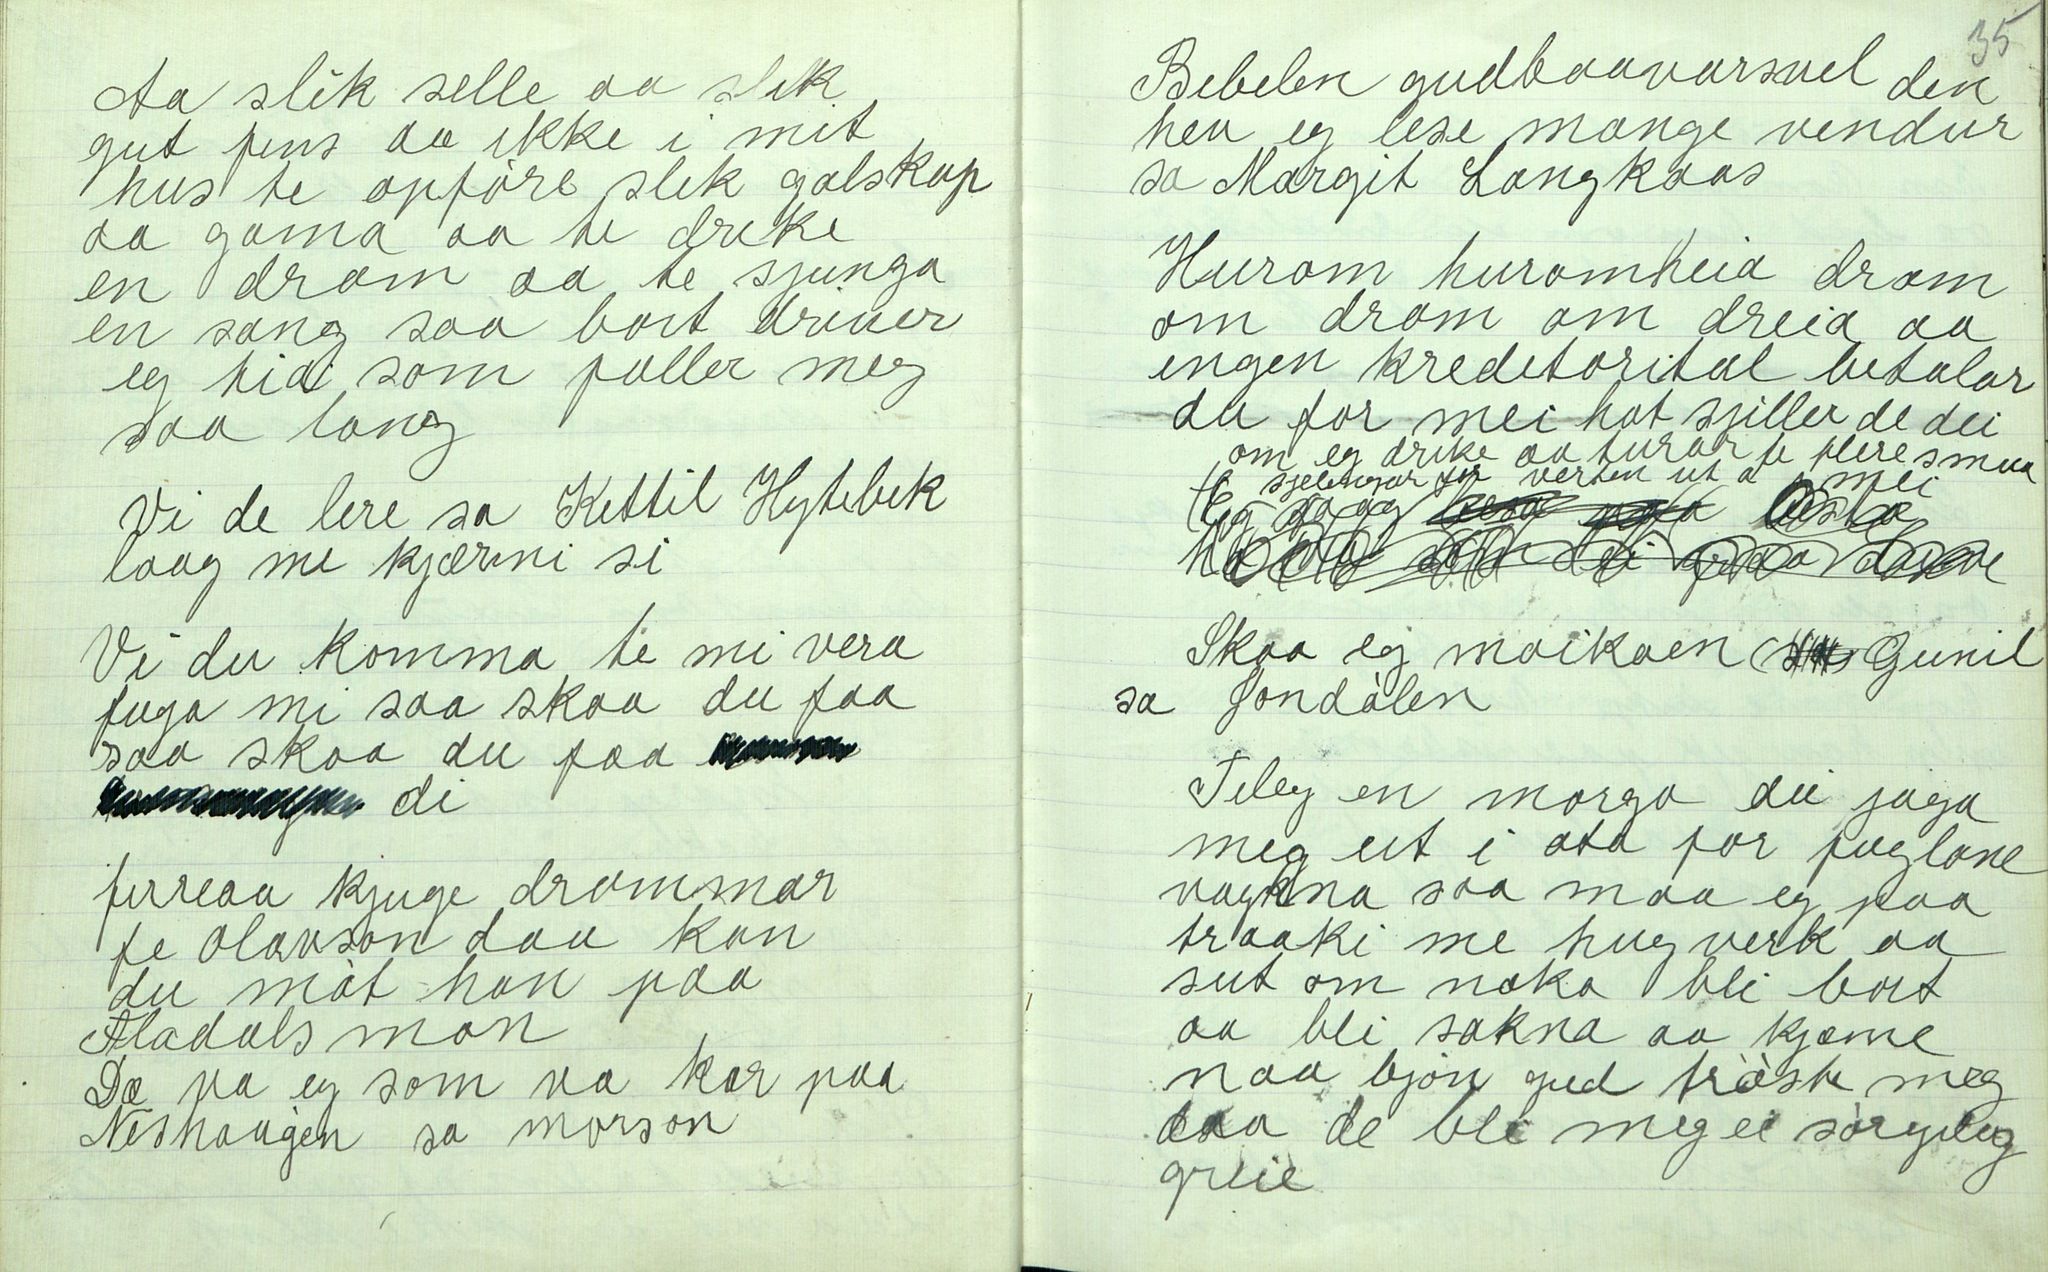 Aa slik selle aa slik
gut fins aa ikke i mit
hus te opføre slik galskap
aa gama aa te dreke
en dram aa te sjunga
en sang saa bort driver
eg tidi som faller meg
saa lang
Vi de lere sa Kettil Hytebek
laag me kjærni si
Vi du komma te mi vera
fuga mi saa skaa du faa
saa skaa du faa
di
firreaa kjuge drammar
fe Olavson daa kan
du møt han paa
Fladals mon
Dæ va eg som va kar paa
Neshaugen sa morson
35
Bebelen gudbaavarsvel den
hev eg lese mange vendur
sa Margit Langkaas
Hurom huromheia dram
om dram om dreia aa
engen kredetorital betalar
du for mei hot sjiller de dei
om eg drike aa turar fe flere smaa
sjelengar før verten ut a mei
Skaa eg maikaen Gunil
sa Jondalen
Teleg en morga du jaga
meg ut i ota for fuglane
vagkna saa maa eg paa
traaki me hugverk aa
sut om noka bli bort
aa bli sakna aa kjæme
naa bjøn gud trøste meg
daa de ble meg ei sørgeleg
greie